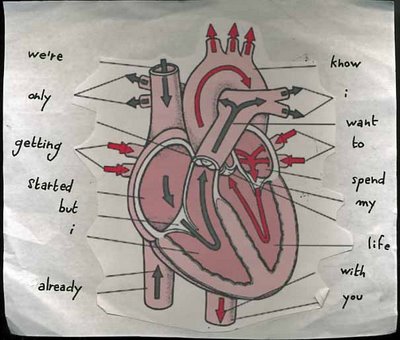 we're
only
getting
started
but
i
already
know
i
want
to
spend
my
life
with
you